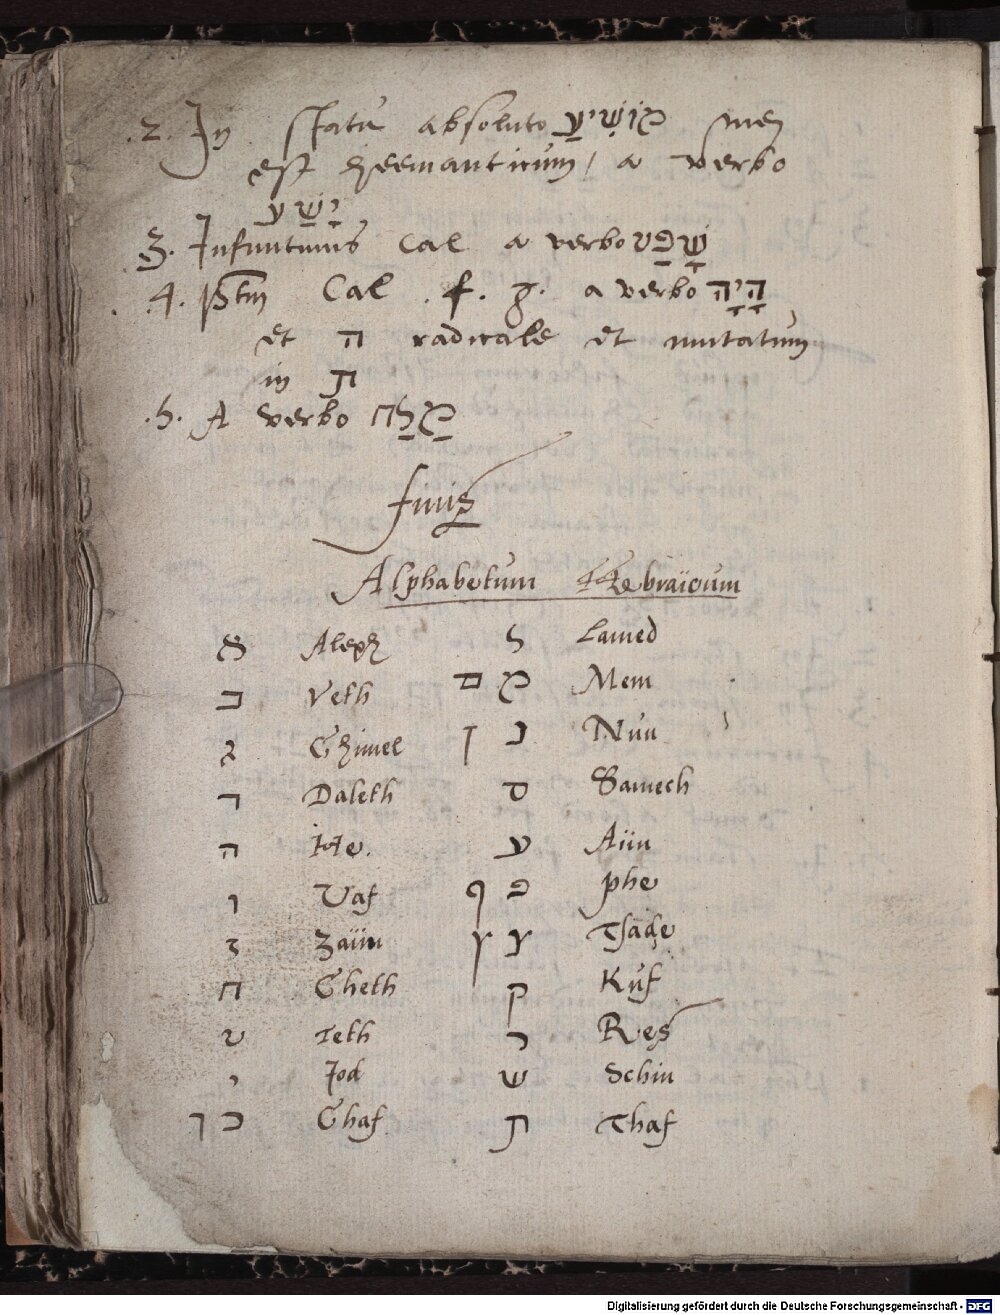 2. In statu absoluto מוֹשִׁיעַ mem
est heemanticum, a verbo
יָשַׁע
3. Infinitivus Cal a verbo שָׁפַט
4. Ptm Cal . f. g. a verbo הָיָה
et ה radicale et mutatum
in ת
5. A verbo מָלַח
finis
Alphabetum Hebraïcum
א Aleph ל Lamed
ב Veth ם מ Mem
ג Ghimel ן נ Nun
ד Daleth ס Samech
ה He. ע Aiin
ו Vaf ף פ phe
ז Zaiin ץ צ Tsade
ח Cheth ק Kuf
ט Teth ר Res
י Jod ש Schin
ך כ Chaf ת Thaf
Digitalisierung gefördert durch die Deutsche Forschungsgemeinschaft - DFG